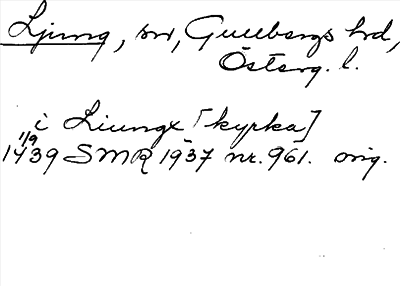 Ljung, sn, Gullbergs hd,
Österg. l.
i Liungx [kyrka]
1/9
1439 SMR 1937 nr. 961. orig.